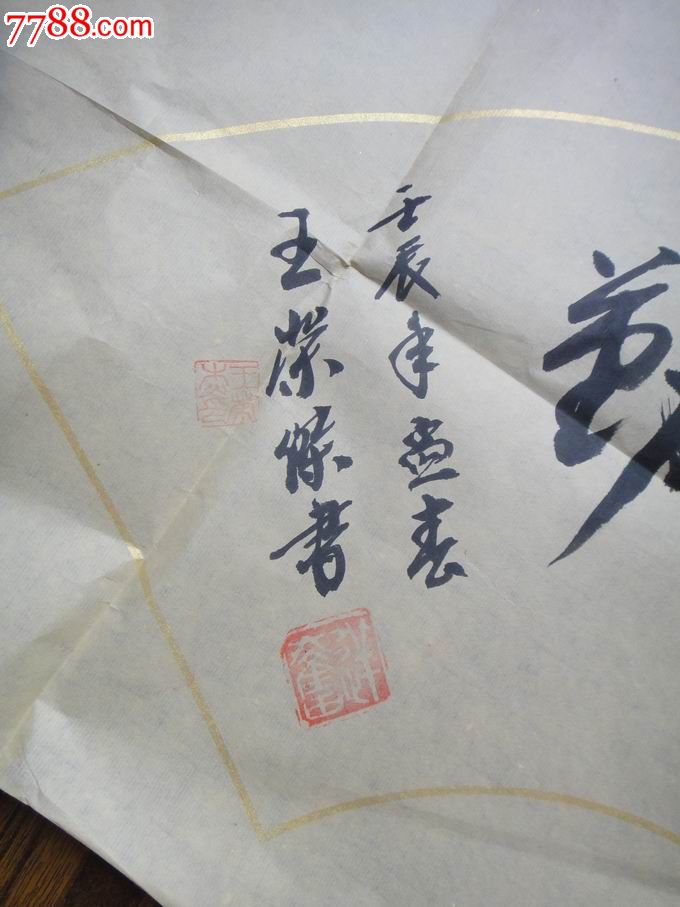 7788.com
壬辰年孟春
王榮傑書